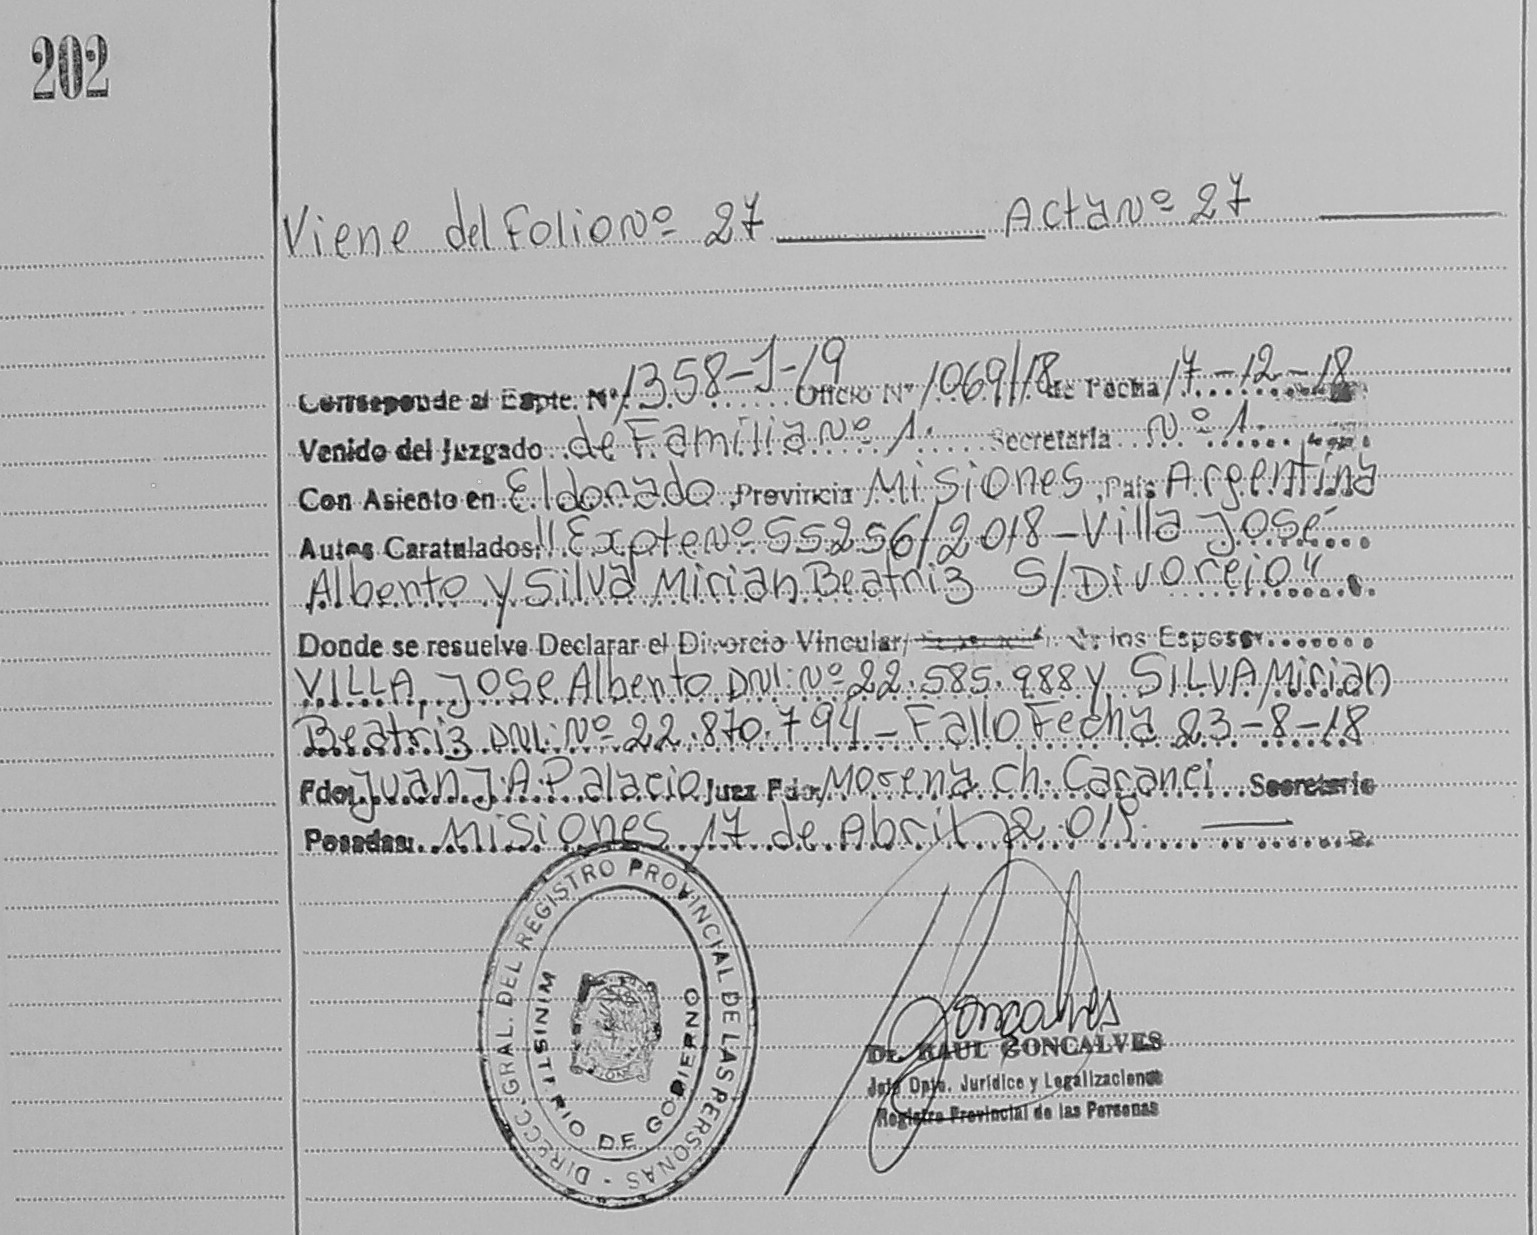 202
Viene del Folio Nº 27 Acta Nº 27
Corresponde al Expte. Nº 1358-J-19 Oficio Nº 1069/18 de Fecha 17-12-18
Venido del Juzgado de Familia Nº 1. Secretaria Nº 1.
Con Asiento en Eldorado, Provincia Misiones, País Argentina
Autos Caratulados: "Expte Nº 55256/2018-Villa José
Alberto y Silva Mirian Beatriz S/Divorcio".
Donde se resuelve Declarar el Divorcio Vincular/ de los Esposos
VILLA, Jose Alberto DNI: Nº 22.585.988 y SILVA Mirian
Beatriz DNI: Nº 22.870.794- Fallo Fecha 23-8-18
Fdo: Juan J.A. Palacio Juez Fdo: Morena Ch. Cacanci Secretario
Posadas: Misiones 17 de Abril 2.019.
DIRECC. GRAL. DEL REGISTRO PROVINCIAL DE LAS PERSONAS -
MINISTERIO DE GOBIERNO
Goncalves
Dr. RAUL GONCALVES
Jefe Dpto. Jurídico y Legalizaciones
Registro Provincial de las Personas